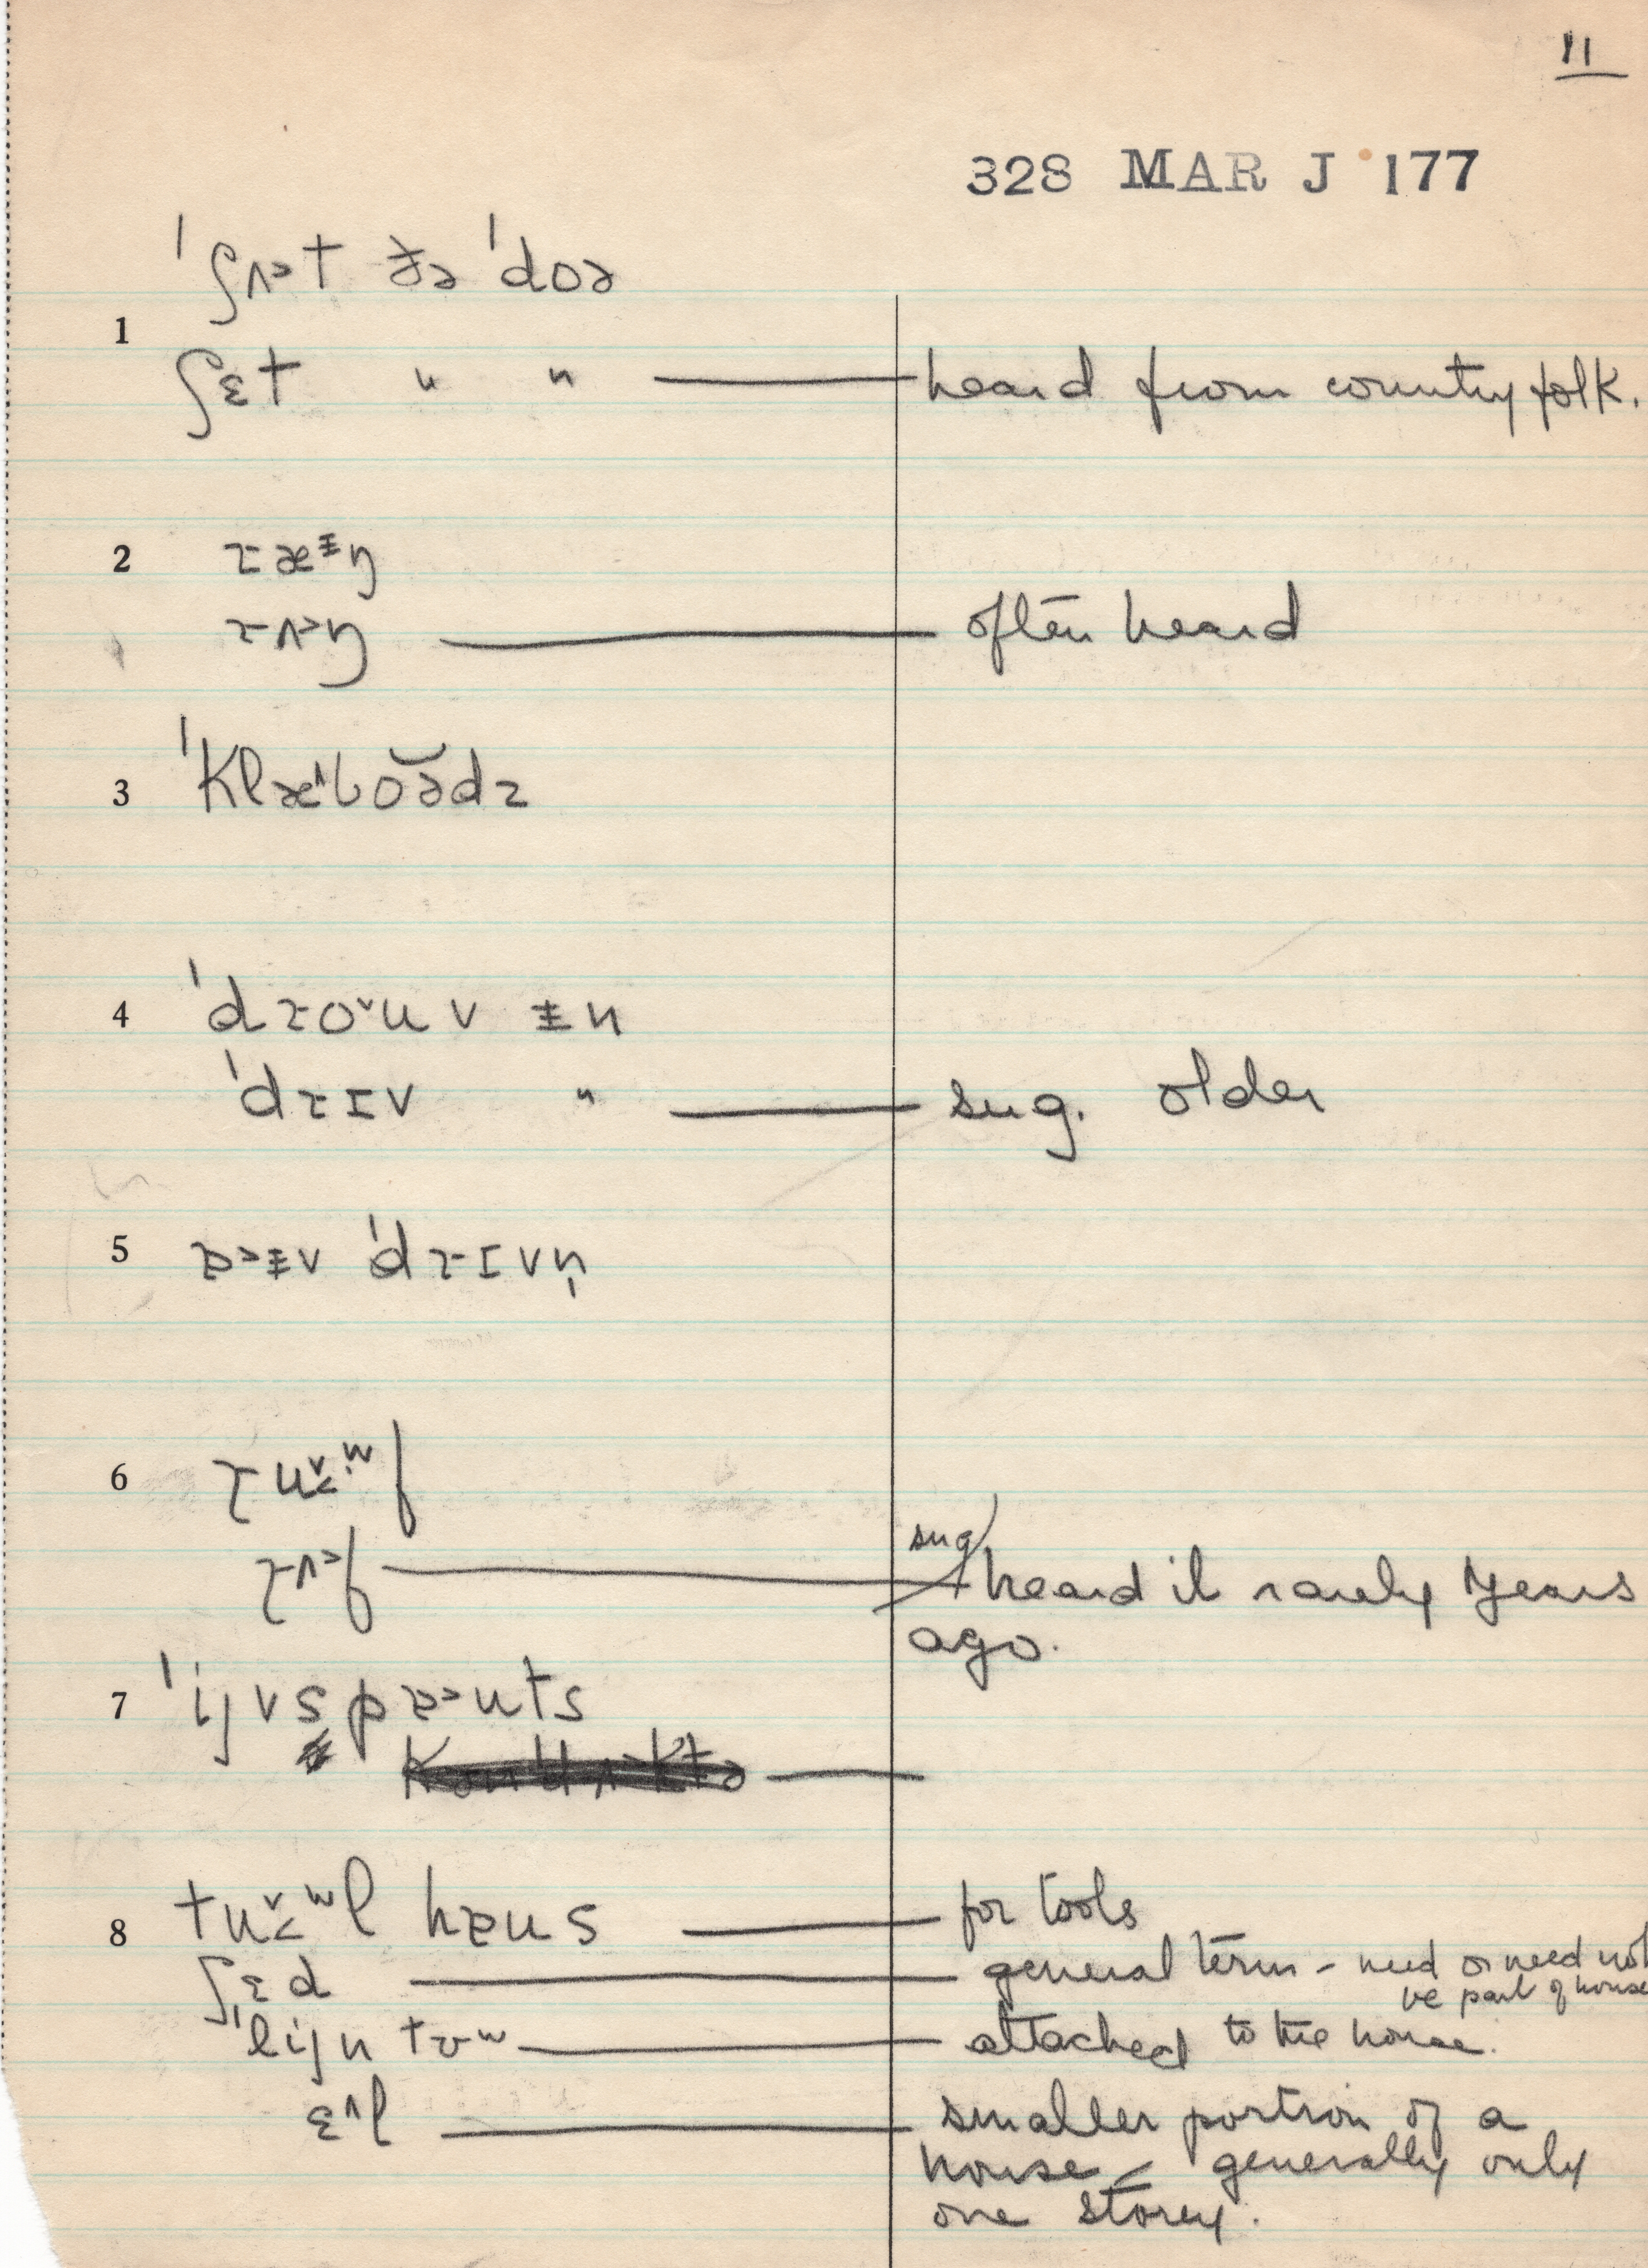 11
328 MAR J 177
ˈʃʌ˃t ðə ˈdoə
1
ʃɛt " " — heard from country folk.
2 ɹæᵻŋ
ɹʌ˃ŋ — often heard
3 ˈklæ˄boə̆dz
4 ˈdɹo˅u v ᵻn
ˈdɹɪv " — sug. older
5 ɒ˃ᵻv ˈdɹɪvn̩
6 ɹu˅˂ʷf
ɹʌ˃f — sug heard it rarely years
ago.
7 ˈijvspɒ˃uts
8 tu˅˂ʷl haus — for tools
ʃɛd — general term - need or need not
be part of house
ˈlijn tʊʷ — attached to the house.
ɛ˄l — smaller portion of a
house - generally only
one storey.